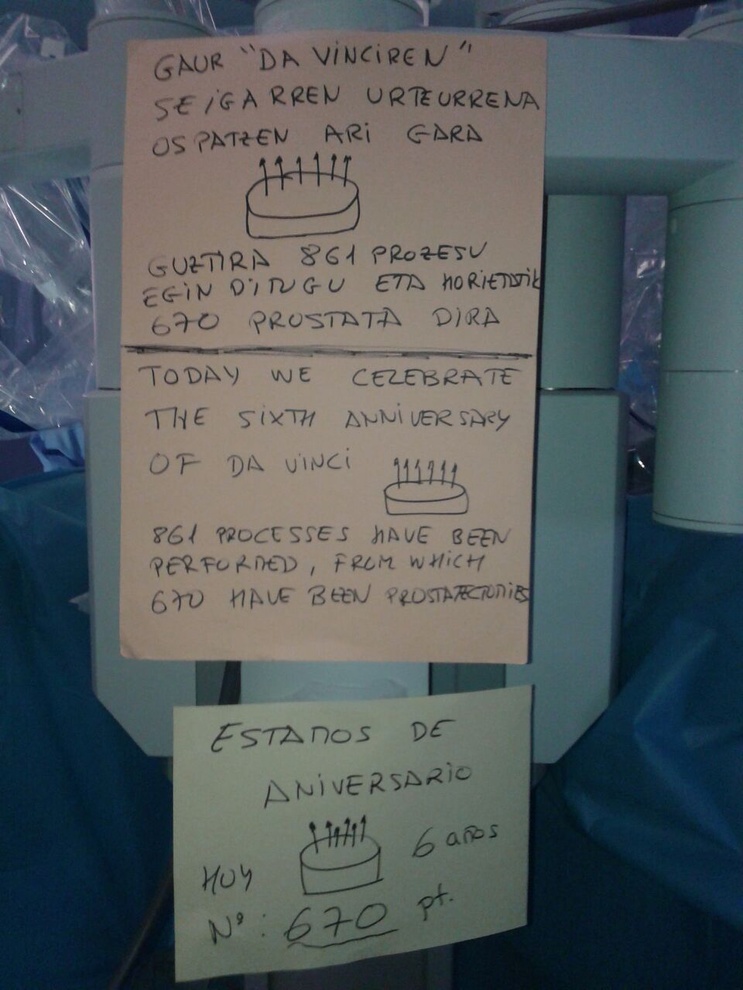 GAUR "DA VINCIREN"
SEIGARREN URTEURRENA
OSPATZEN ARI GARA
GUZTIRA 861 PROZESU
EGIN DITUGU ETA HORIETATIK
670 PROSTATA DIRA
TODAY WE CELEBRATE
THE SIXTH ANNIVERSARY
OF DA VINCI
861 PROCESSES HAVE BEEN
PERFORMED, FROM WHICH
670 HAVE BEEN PROSTATECTOMIES
ESTAMOS DE
ANIVERSARIO
HUY 6 años
Nº: 670 pt.